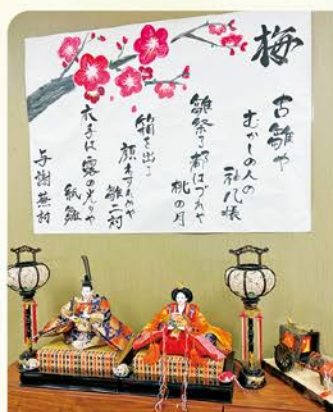 梅
古雛や
むかしの人の
袖几帳
雛祭る都はづれや
桃の月
箱を出る
顔わすれめや
雛二対
衣手は露の光りや
紙雛
与謝蕪村